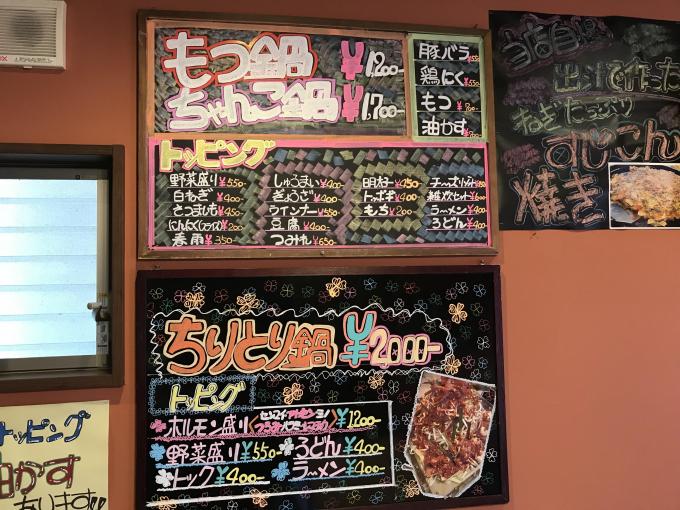 もつ鍋 ¥1,200-
ちゃんこ鍋 ¥1,700-
豚バラ ¥550
鶏にく ¥550
もつ ¥700-
油かす ¥700-
トッピング
野菜盛り ¥550- しゅうまい ¥400- 明太子 ¥450
白ねぎ ¥400- ぎょうざ ¥400- トッポギ ¥400 雑炊セット ¥600
さつまいも ¥450 ウインナー ¥550 もち ¥200 ラーメン ¥400
にんにく(スライス) ¥200 豆腐 ¥400- うどん ¥400-
春雨 ¥350- つみれ ¥650-
当店自慢
出汁で作った
ねぎたっぷり
すじこん
焼き
ちりとり鍋 ¥2000-
トッピング
ホルモン盛り ¥1200-
野菜盛り ¥550- うどん ¥400-
トック ¥400- ラーメン ¥400-
トッピング
油かす
あります!!